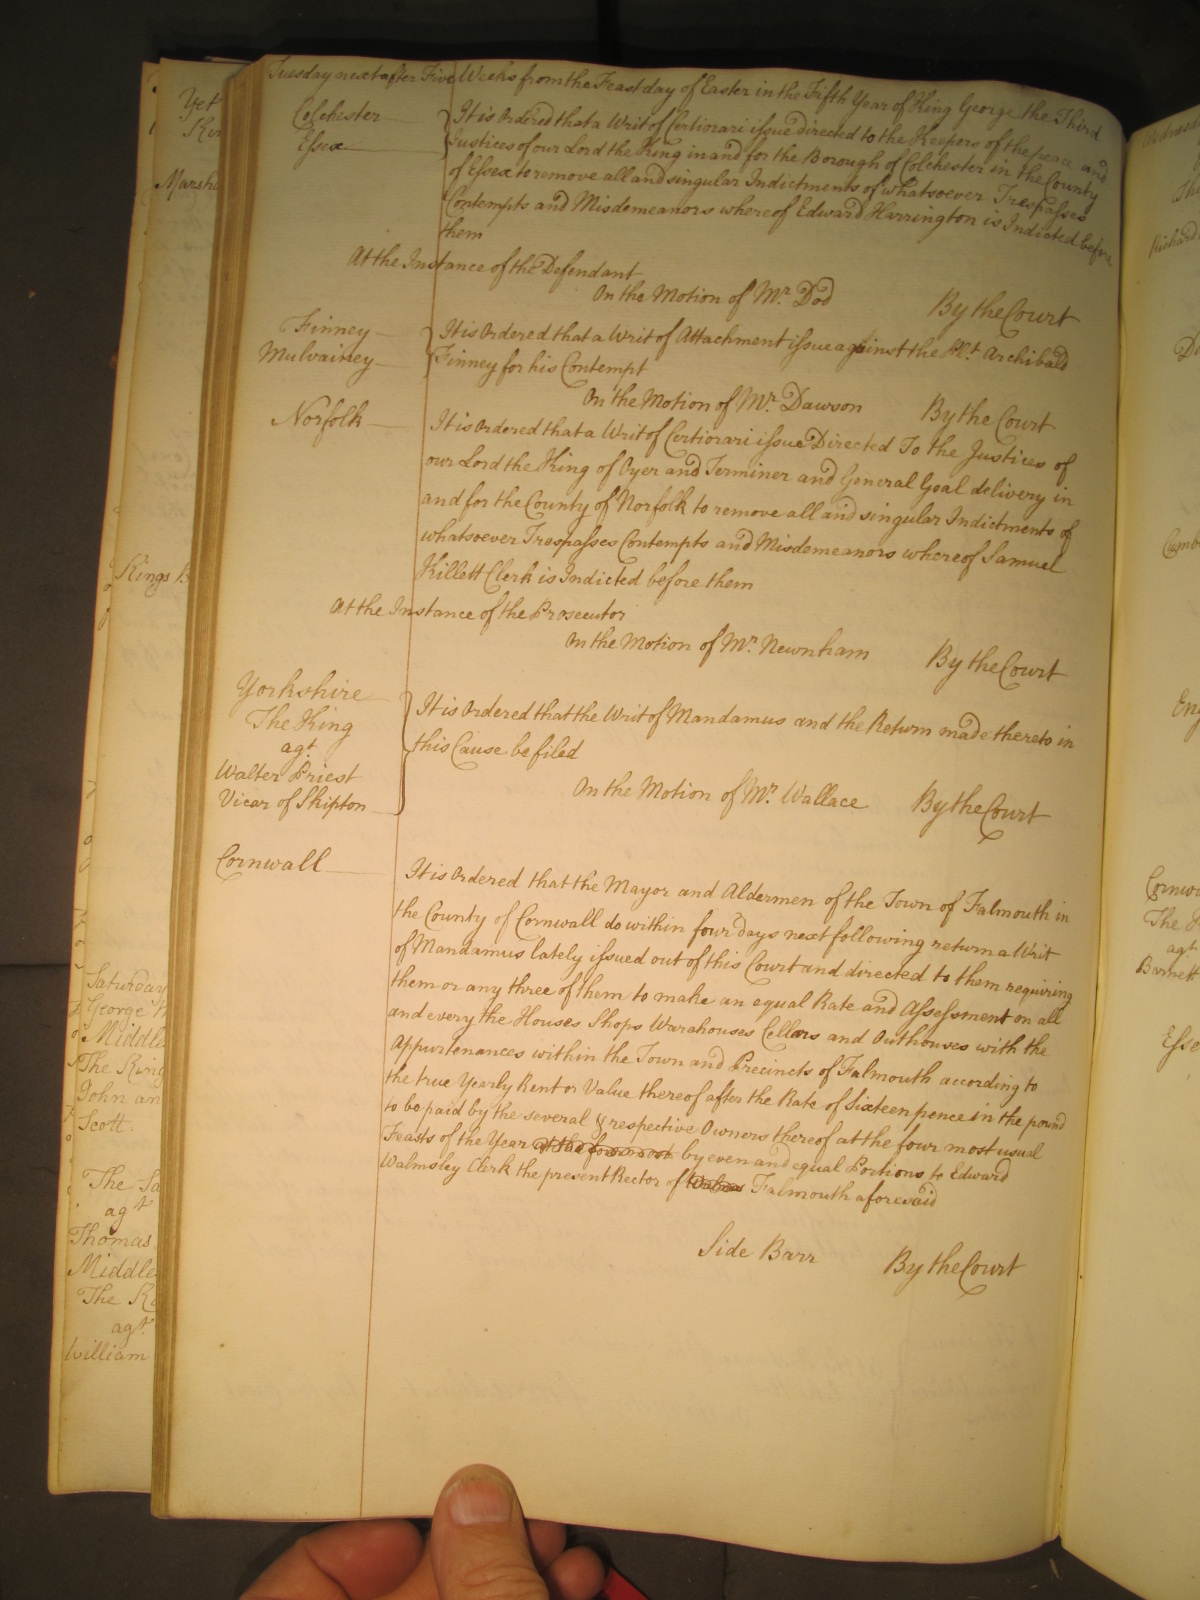 Tuesday next after Five Weeks from the Feast day of Easter in the Fifth Year of King George the Third
Colchester
Essex
It is Ordered that a Writ of Certiorari issue directed to the Keepers of the peace and
Justices of our Lord the King in and for the Borough of Colchester in the County
of Essex to remove all and singular Indictments of whatsoever Trespasses
Contempts and Misdemeanors whereof Edward Harrington is Indicted before
them
At the Instance of the Defendant
On the Motion of Mr. Dod By the Court
Finney
Mulvainey
It is Ordered that a Writ of Attachment issue against the Archibald
Finney for his Contempt
On the Motion of Mr. Dawson By the Court
Norfolk
It is Ordered that a Writ of Certiorari issue Directed To the Justices of
our Lord the King of Oyer and Terminer and General Goal delivery in
and for the County of Norfolk to remove all and singular Indictments of
whatsoever Trespasses Contempts and Misdemeanors whereof Samuel
Killett Clerk is Indicted before them
At the Instance of the Prosecutor
On the Motion of Mr. Newnham By the Court
Yorkshire
The King
agt.
Walter Priest
Vicar of Skipton
It is Ordered that the Writ of Mandamus and the Return made thereto in
this Cause be filed
On the Motion of Mr. Wallace By the Court
Cornwall
It is Ordered that the Mayor and Aldermen of the Town of Falmouth in
the County of Cornwall do within four days next following return a Writ
of Mandamus lately issued out of this Court and directed to them requiring
them or any three of them to make an equal Rate and Assessment on all
and every the Houses Shops Warehouses Cellars and Outhouses with the
Appurtenances within the Town and Precincts of Falmouth according to
the true Yearly Rent or Value thereof after the Rate of Sixteen pence in the pound
to be paid by the several & respective Owners thereof at the four most usual
Feasts of the Year at the four most by even and equal Portions to Edward
Walmsley Clerk the present Rector of Falmouth aforesaid
Side Barr By the Court
Yet
Kin
Marsha
Kings B
Saturday
George
Middle
The King
John an
Scott
The Sa
agt
Thomas
Middle
The K
agt.
William
Wednesd
The
Richard
Cumb
Eng
Cornw
The K
agt.
Barnett
Esse